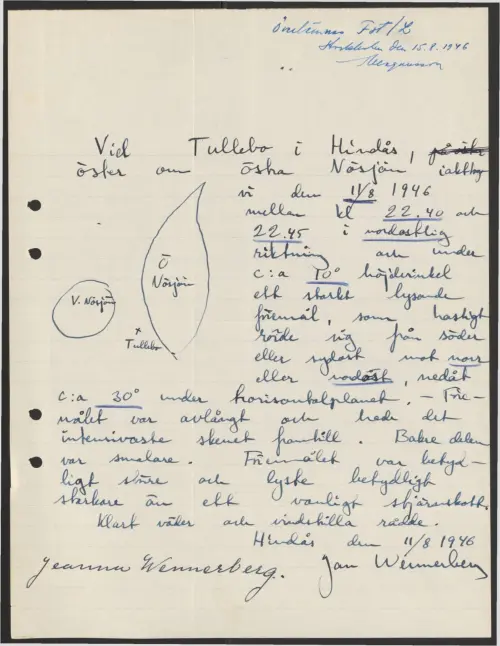 Överlämnas Fst/L
Stockholm den 15.8.1946
Vid Tullebo i Hindås, på östra
öster om östra Nösjön iakttog
vi den 11/8 1946
mellan kl 22.40 och
22.45 i nordostlig
riktning och under
c:a 10° höjdvinkel
ett starkt lysande
föremål, som hastigt
rörde sig från söder
eller sydost mot norr
eller nordost, nedåt
c:a 30° under horisontalplanet. – Före-
målet var avlångt och hade det
intensivaste skenet framtill. Bakre delen
var smalare. Föremålet var betyd-
ligt större och lyste betydligt
starkare än ett vanligt stjärnskott.
Klart väder och vindstilla rådde.
Hindås den 11/8 1946
Jeanna Wennerberg. Jan Wennerberg
Ö
Nösjön
V. Nösjön
x
Tullebo